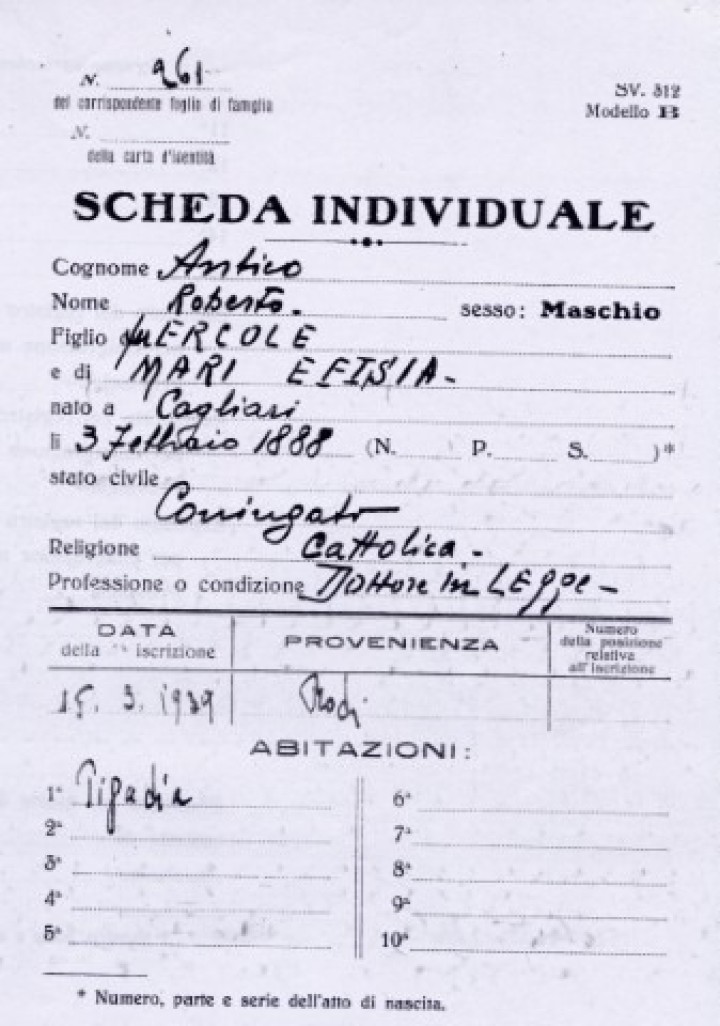 N. 261
del corrispondente foglio di famiglia
N.
della carta d'identità
SV. 312
Modello B
SCHEDA INDIVIDUALE
Cognome Antico
Nome Roberto.
sesso: Maschio
Figlio fu ERCOLE
e di MARI EFISIA -
nato a Cagliari
li 3 Febbraio 1888 (N. P. S. )*
stato civile Coniugato
Religione Cattolica -
Professione o condizione Dottore in LEgge -
DATA
della 1ª iscrizione
PROVENIENZA
Numero
della posizione
relativa
all'iscrizione
15. 3. 1939 Rodi
ABITAZIONI:
1ª Pigadia
2ª
3ª
4ª
5ª
6ª
7ª
8ª
9ª
10ª
* Numero, parte e serie dell'atto di nascita.